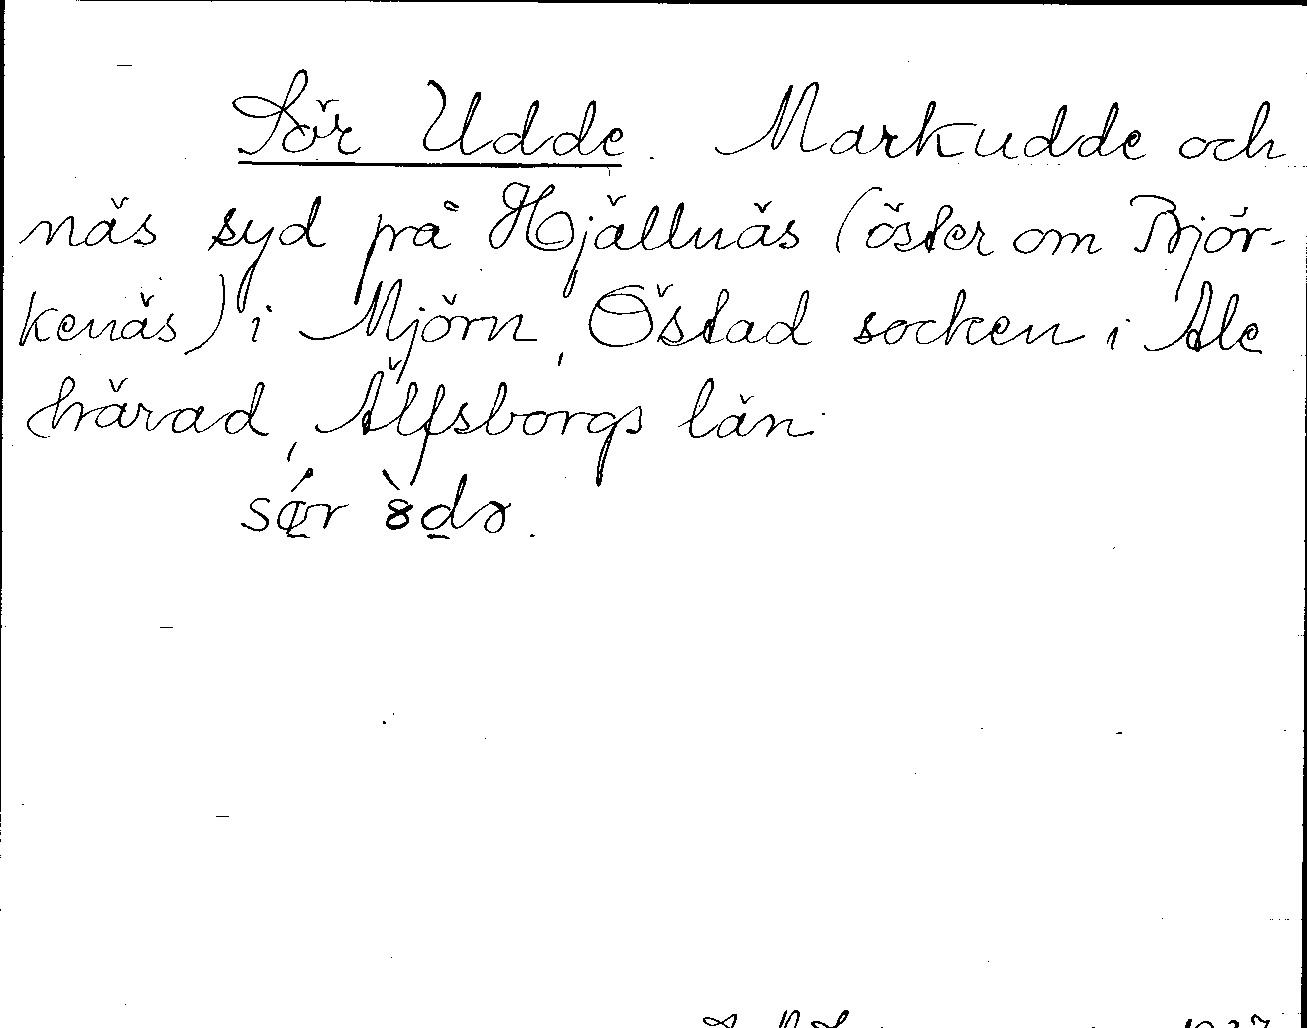 Sör Udde. Markudde och
näs syd på Hjällnäs (öster om Björ-
kenäs) i Mjörn, Östad socken i Ale
härad, Älfsborgs län.